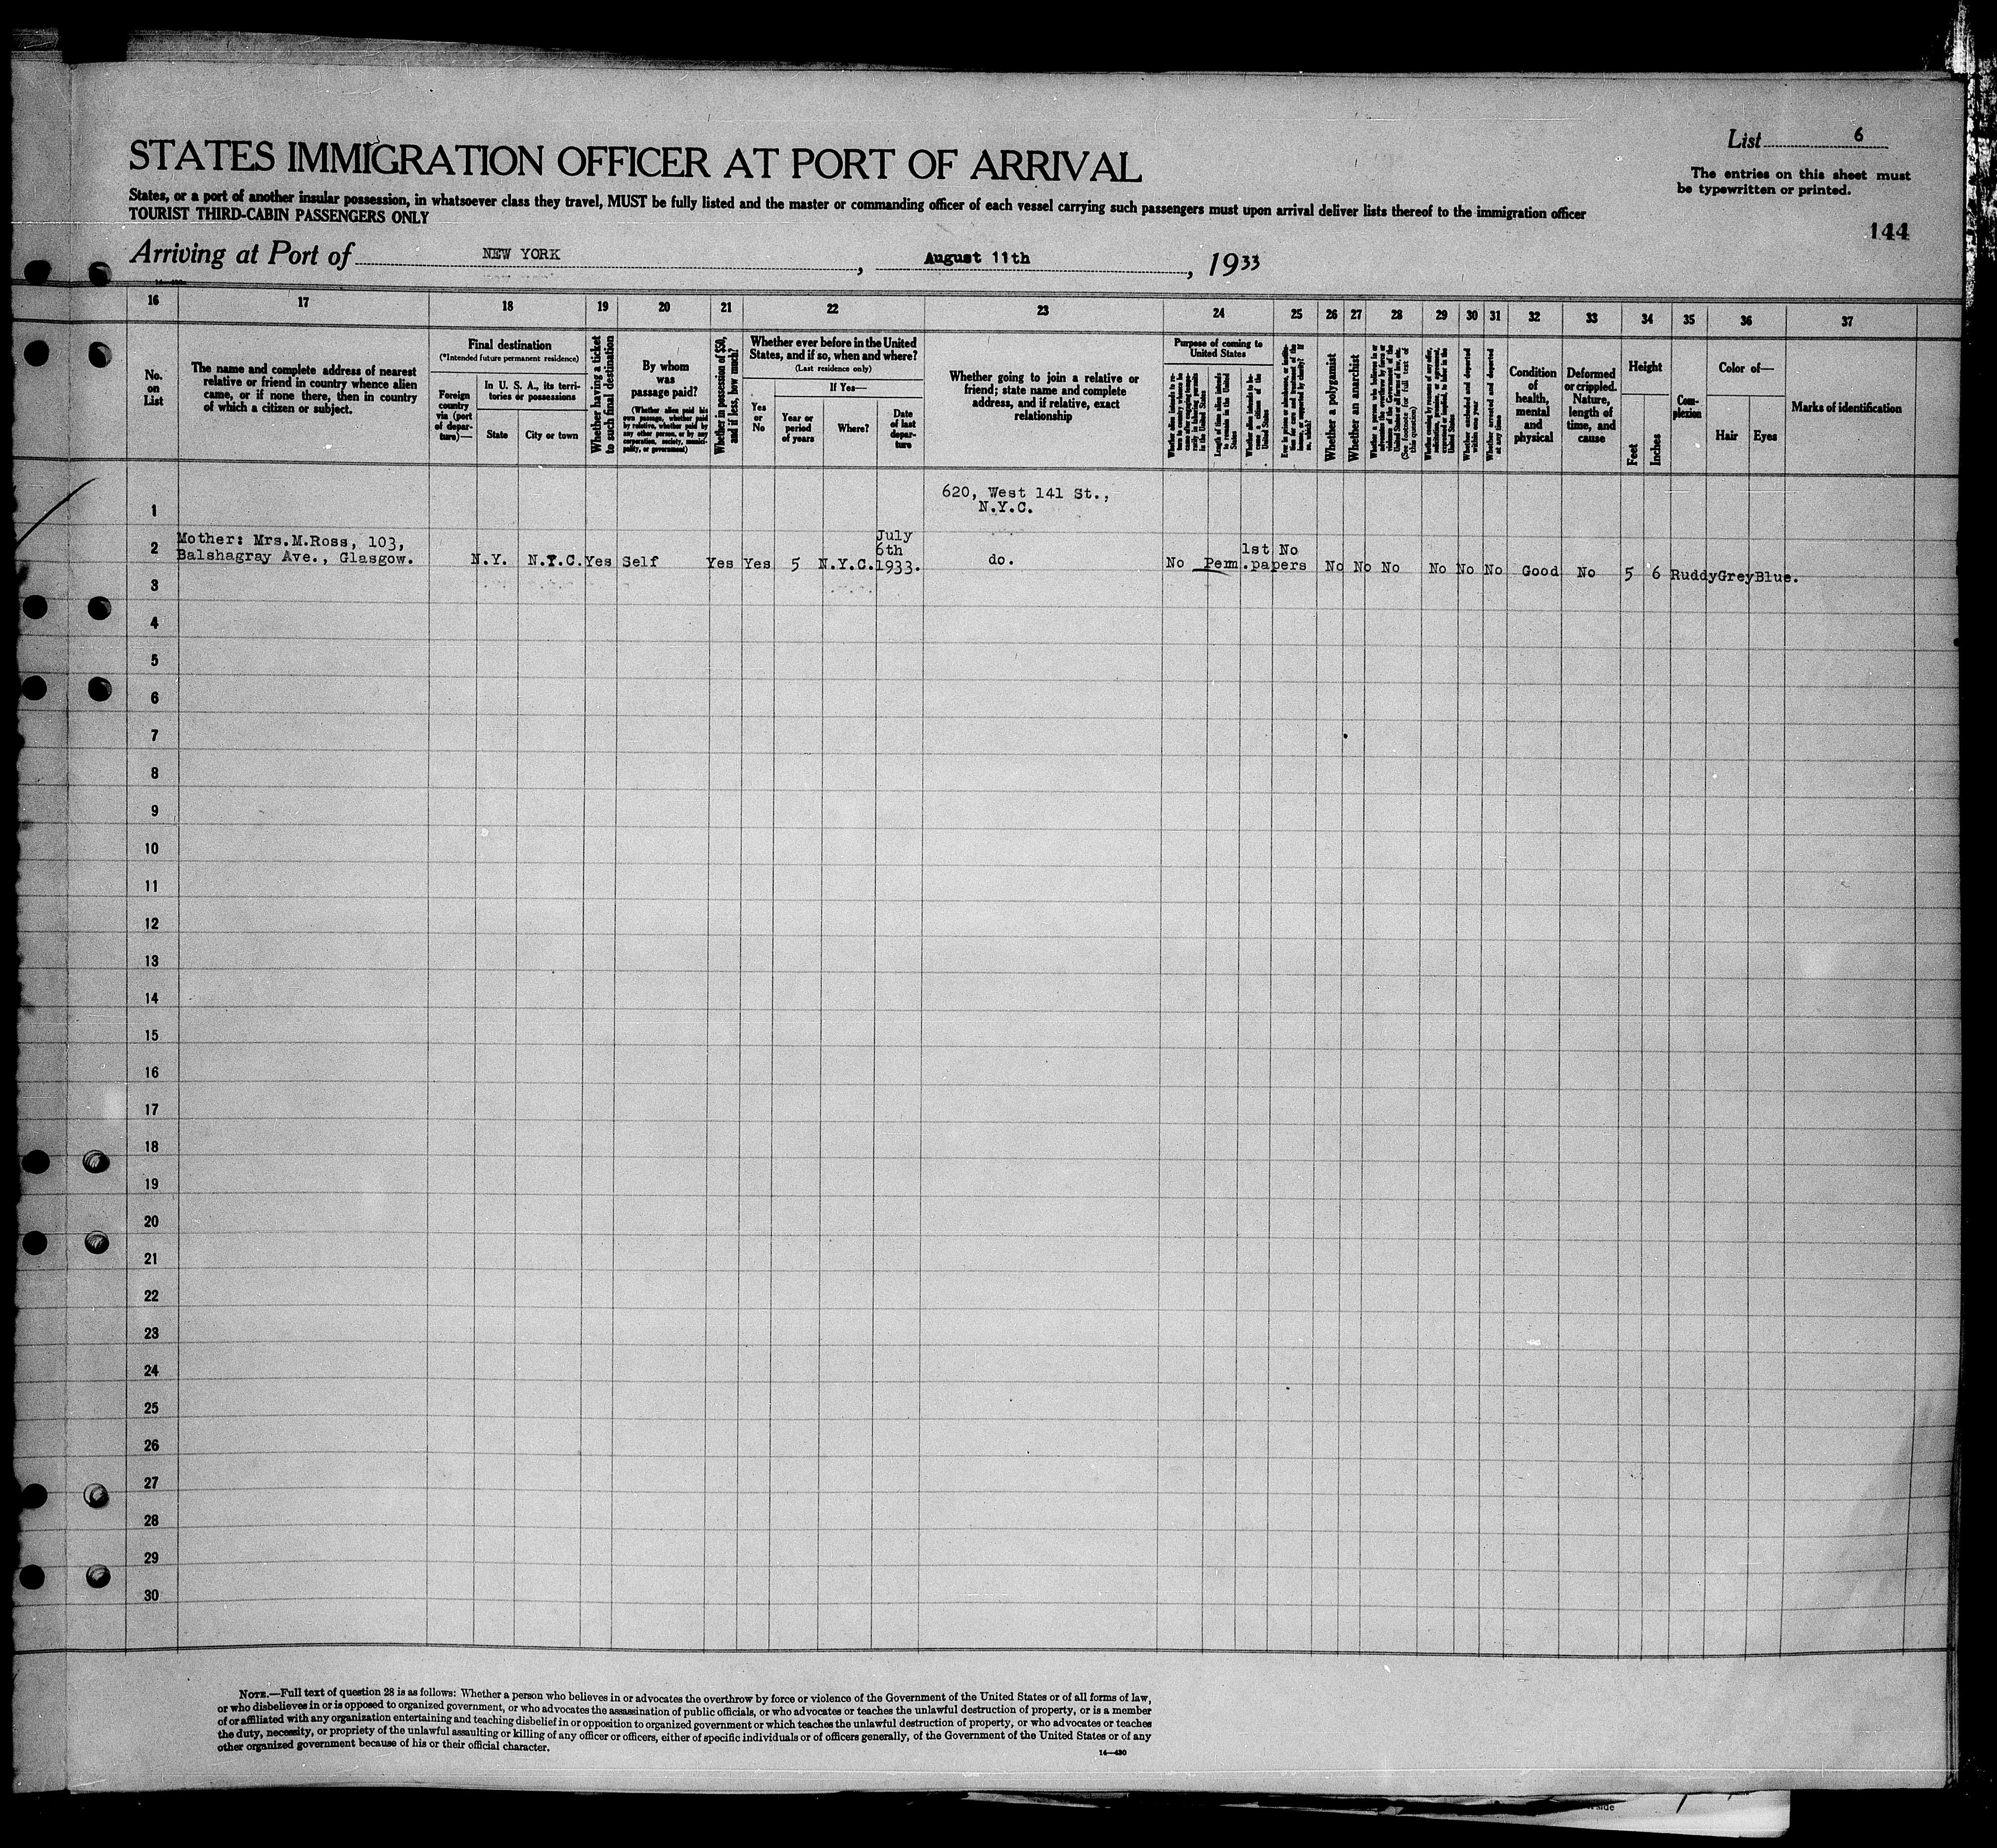 List 6
STATES IMMIGRATION OFFICER AT PORT OF ARRIVAL
The entries on this sheet must
be typewritten or printed.
States, or a port of another insular possession, in whatsoever class they travel, MUST be fully listed and the master or commanding officer of each vessel carrying such passengers must upon arrival deliver lists thereof to the immigration officer
TOURIST THIRD-CABIN PASSENGERS ONLY
144
Arriving at Port of NEW YORK, August 11th, 1933
16 17 18 19 20 21 22 23 24 25 26 27 28 29 30 31 32 33 34 35 36 37
No.
on
List
The name and complete address of nearest
relative or friend in country whence alien
came, or if none there, then in country
of which a citizen or subject.
Final destination
(*Intended future permanent residence)
Foreign
country
via (port
of depar-
ture)—
In U. S. A., its terri-
tories or possessions
State
City or town
Whether having a ticket
to such final destination
By whom
was
passage paid?
(Whether alien paid his
own passage, whether paid
by relative, whether paid by
any other person, or by any
corporation, society, munici-
pality, or government)
Whether in possession of $50,
and if less, how much?
Whether ever before in the United
States, and if so, when and where?
(Last residence only)
Yes
or
No
If Yes—
Year or
period
of years
Where?
Date
of last
depar-
ture
Whether going to join a relative or
friend; state name and complete
address, and if relative, exact
relationship
Purpose of coming to
United States
Length of time alien intends
to remain in the United
States
Whether alien intends to be-
come a citizen of the
United States
Whether a polygamist
Whether an anarchist
(See footnote for full text of
this question)
Whether arrested and deported
at any time
Condition
of
health,
mental
and
physical
Deformed
or crippled.
Nature,
length of
time, and
cause
Height
Feet
Inches
Com-
plexion
Color of—
Hair
Eyes
Marks of identification
620, West 141 St.,
1 N.Y.C.
2 Mother: Mrs.M.Ross, 103,
Balshagray Ave., Glasgow. N.Y. N.Y.C. Yes Self Yes Yes 5 N.Y.C. July
6th
1933. do. No Perm. 1st
papers No No No No No No No Good No 5 6 Ruddy Grey Blue.
3
4
5
6
7
8
9
10
11
12
13
14
15
16
17
18
19
20
21
22
23
24
25
26
27
28
29
30
NOTE.—Full text of question 28 is as follows: Whether a person who believes in or advocates the overthrow by force or violence of the Government of the United States or of all forms of law,
or who disbelieves in or is opposed to organized government, or who advocates the assassination of public officials, or who advocates or teaches the unlawful destruction of property, or is a member
of or affiliated with any organization entertaining and teaching disbelief in or opposition to organized government or which teaches the unlawful destruction of property, or who advocates or teaches
the duty, necessity, or propriety of the unlawful assaulting or killing of any officer or officers, either of specific individuals or of officers generally, of the Government of the United States or of any
other organized government because of his or their official character.
14—430